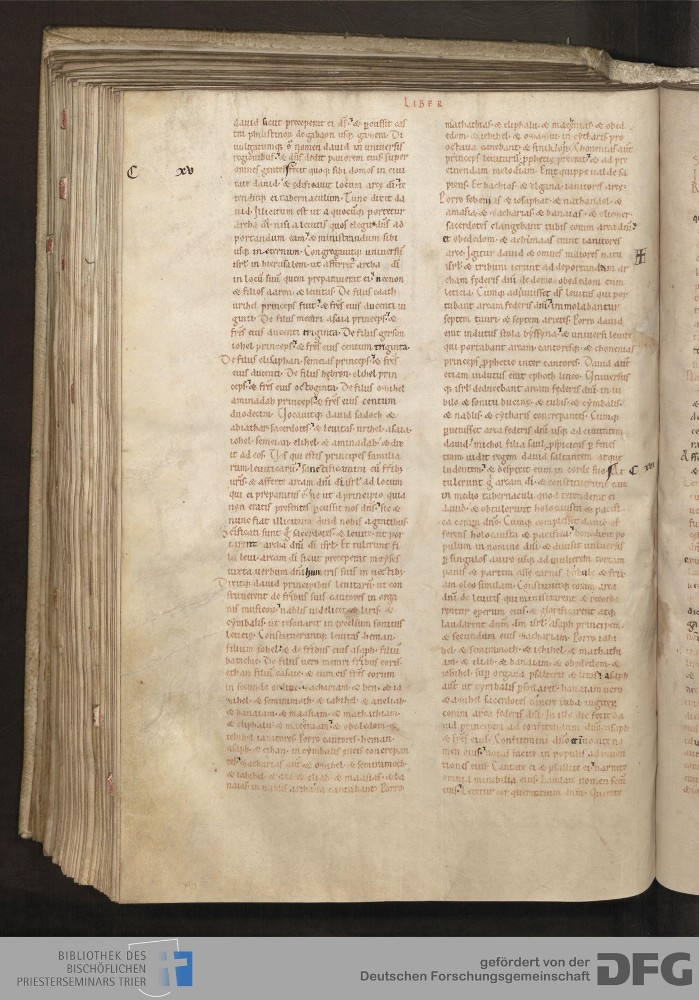 LIBER
C xv
david sicut preceperat ei
tra philistinorum de gabaon usque
nomen david in universis
regionibus
omnes gentes. Fecit quoque sibi domos in civi
tate david. & edificavit locum arce
tenditque ei tabernaculum. Tunc dixit da
vid. Illicitum est ut a quocumque portetur
archa nisi a levitis quos elegit
portandum eam & ministrandum sibi
usque in eternum. Congregavitque universum
isrl in hierusalem. ut
in locum suum quem preparaverat ei. necnon
& filios aaron. & levitas. De filiis caath
urihel princeps fuit. & fres eius ducenti vi
ginti. De filiis merari. asaia princeps. &
fres eius ducenti triginta. De filiis gerson
iohel princeps. & fres eius centum triginta.
De filiis elisaphan. semeias princeps. & fres
eius ducenti. De filiis hebron. elihel prin
ceps. & fres eius octoginta. De filiis ozihel
aminadab princeps. & fres eius centum
duodecim. Vocavitque david sadoch. &
abiathar sacerdotes. & levitas. urihel. asaia.
iohel. semeian. elihel. & aminadab. & dix
it ad eos. Vos qui estis principes familia
rum leviticarum. sanctificamini cum fribus
vris. & afferte arcam dni di isrl ad locum
qui ei preparatus est. ne ut a principio quia
non eratis presentes percussit nos dns. sic &
nunc fiat illicitum quid nobis agentibus.
levite. ut por
tarent archam dni di isrl. Et tulerunt fi
lii levi arcam di sicut preceperat moyses
iuxta verbum dni humeris suis in vectibus.
Dixitque david principibus levitarum. ut con
stituerent de fribus suis cantores in orga
nis musicorum. nablis videlicet & liris. &
cymbalis. ut resonaret in excelsum sonitus
letitie. Constitueruntque levitas. heman
filium iohel. & de fribus eius asaph. filium
barachie. De filiis vero merari fribus eorum.
ethan filium casaie. & cum eis fres eorum
in secundo ordine. zachariam. & ben. & ia
zihel. & semiramoth. & iahihel. & ani. eliab.
& banaiam. & maasiam. & mathathiam.
& eliphalu. & macheniam. & obededom. &
iehihel ianitores. Porro cantores. heman.
asaph. & ethan. in cymbalis eneis concrepan
tes.
& iahihel. & ani. & eliab. & maasias. & ba
naias in nablis archana cantabant. Porro
mathathias. & eliphalu. & machenias. & obed
edom. & iehihel. & ozaziu. in cytharis pro
octava canebant Chonenias aut
princeps levitarum prophetie preerat. ad pre
cinendam melodiam. Erat quippe valde sa
piens. Et barchias. & elgana. ianitores arce.
Porro sebenias. & iosaphat. & nathanael. &
amasai. & zacharias. & banaias. & eliezer.
sacerdotes clangebant tubis coram arca dni.
et obededom. & achimaas erant ianitores
arce. Igitur david & omnes maiores natu
isrl. & tribuni ierunt ad deportandam ar
cham federis dni. de domo obededom cum
letitia. Cumque adiuvisset ds levitas qui por
tabant arcam federis dni. immolabantur
septem tauri. & septem arietes. Porro david
erat indutus stola byssyna. & universi levite
qui portabant arcam. cantoresque. & chonenias
princeps prophetie inter cantores. David aut
etiam indutus erat ephoth lineo. Universusque
isrl deducebant arcam federis dni in iu
bilo. & sonitu bucine. & tubis. & cymbalis.
& nablis. & cytharis concrepantes. Cumque
pervenisset arca federis dni usque ad civitatem
david. michol filia saul prospiciens per fenes
tram vidit regem david saltantem atque
ludentem. & despexit eum in corde suo. At C xvi
tulerunt arcam di. & constituerunt eam
in medio tabernaculi quod tetenderat ei
david. & obtulerunt holocausta & pacifi
ca coram dno. Cumque complesset david of
ferens holocausta & pacifica. benedixit po
pulum in nomine dni. & divisit universis
per singulos a viro usque ad mulierem. tortam
panis. & partem asse carnis bubule. & frix
am oleo similam. Constituitque coram arca
dni de levitis qui ministrarent. & recorda
rentur operum eius. & glorificarent atque
laudarent dnm dm isrl. asaph principem.
& secundum eius zachariam. Porro iahi
hel. & semiramoth. & iehihel. & mathathi
am. & eliab. & banaiam. & obededom. &
iehihel. super organa psalterii. & liras. asaph
aut ut cymbalis personaret. banaiam vero
& azihel sacerdotes canere tuba iugiter
coram arca federis dni. In illo die fecit da
vid principem ad confitendum dno. asaph
& fres eius. Confitemini dno. & invocate no
men eius. notas facite in populis adinven
tiones eius. Cantate ei. & psallite ei. & narrate
omnia mirabilia eius. Laudate nomen scm
eius. letetur cor querentium dnm. Querite
BIBLIOTHEK DES
BISCHÖFLICHEN
PRIESTERSEMINARS TRIER
gefördert von der
Deutschen Forschungsgemeinschaft
DFG